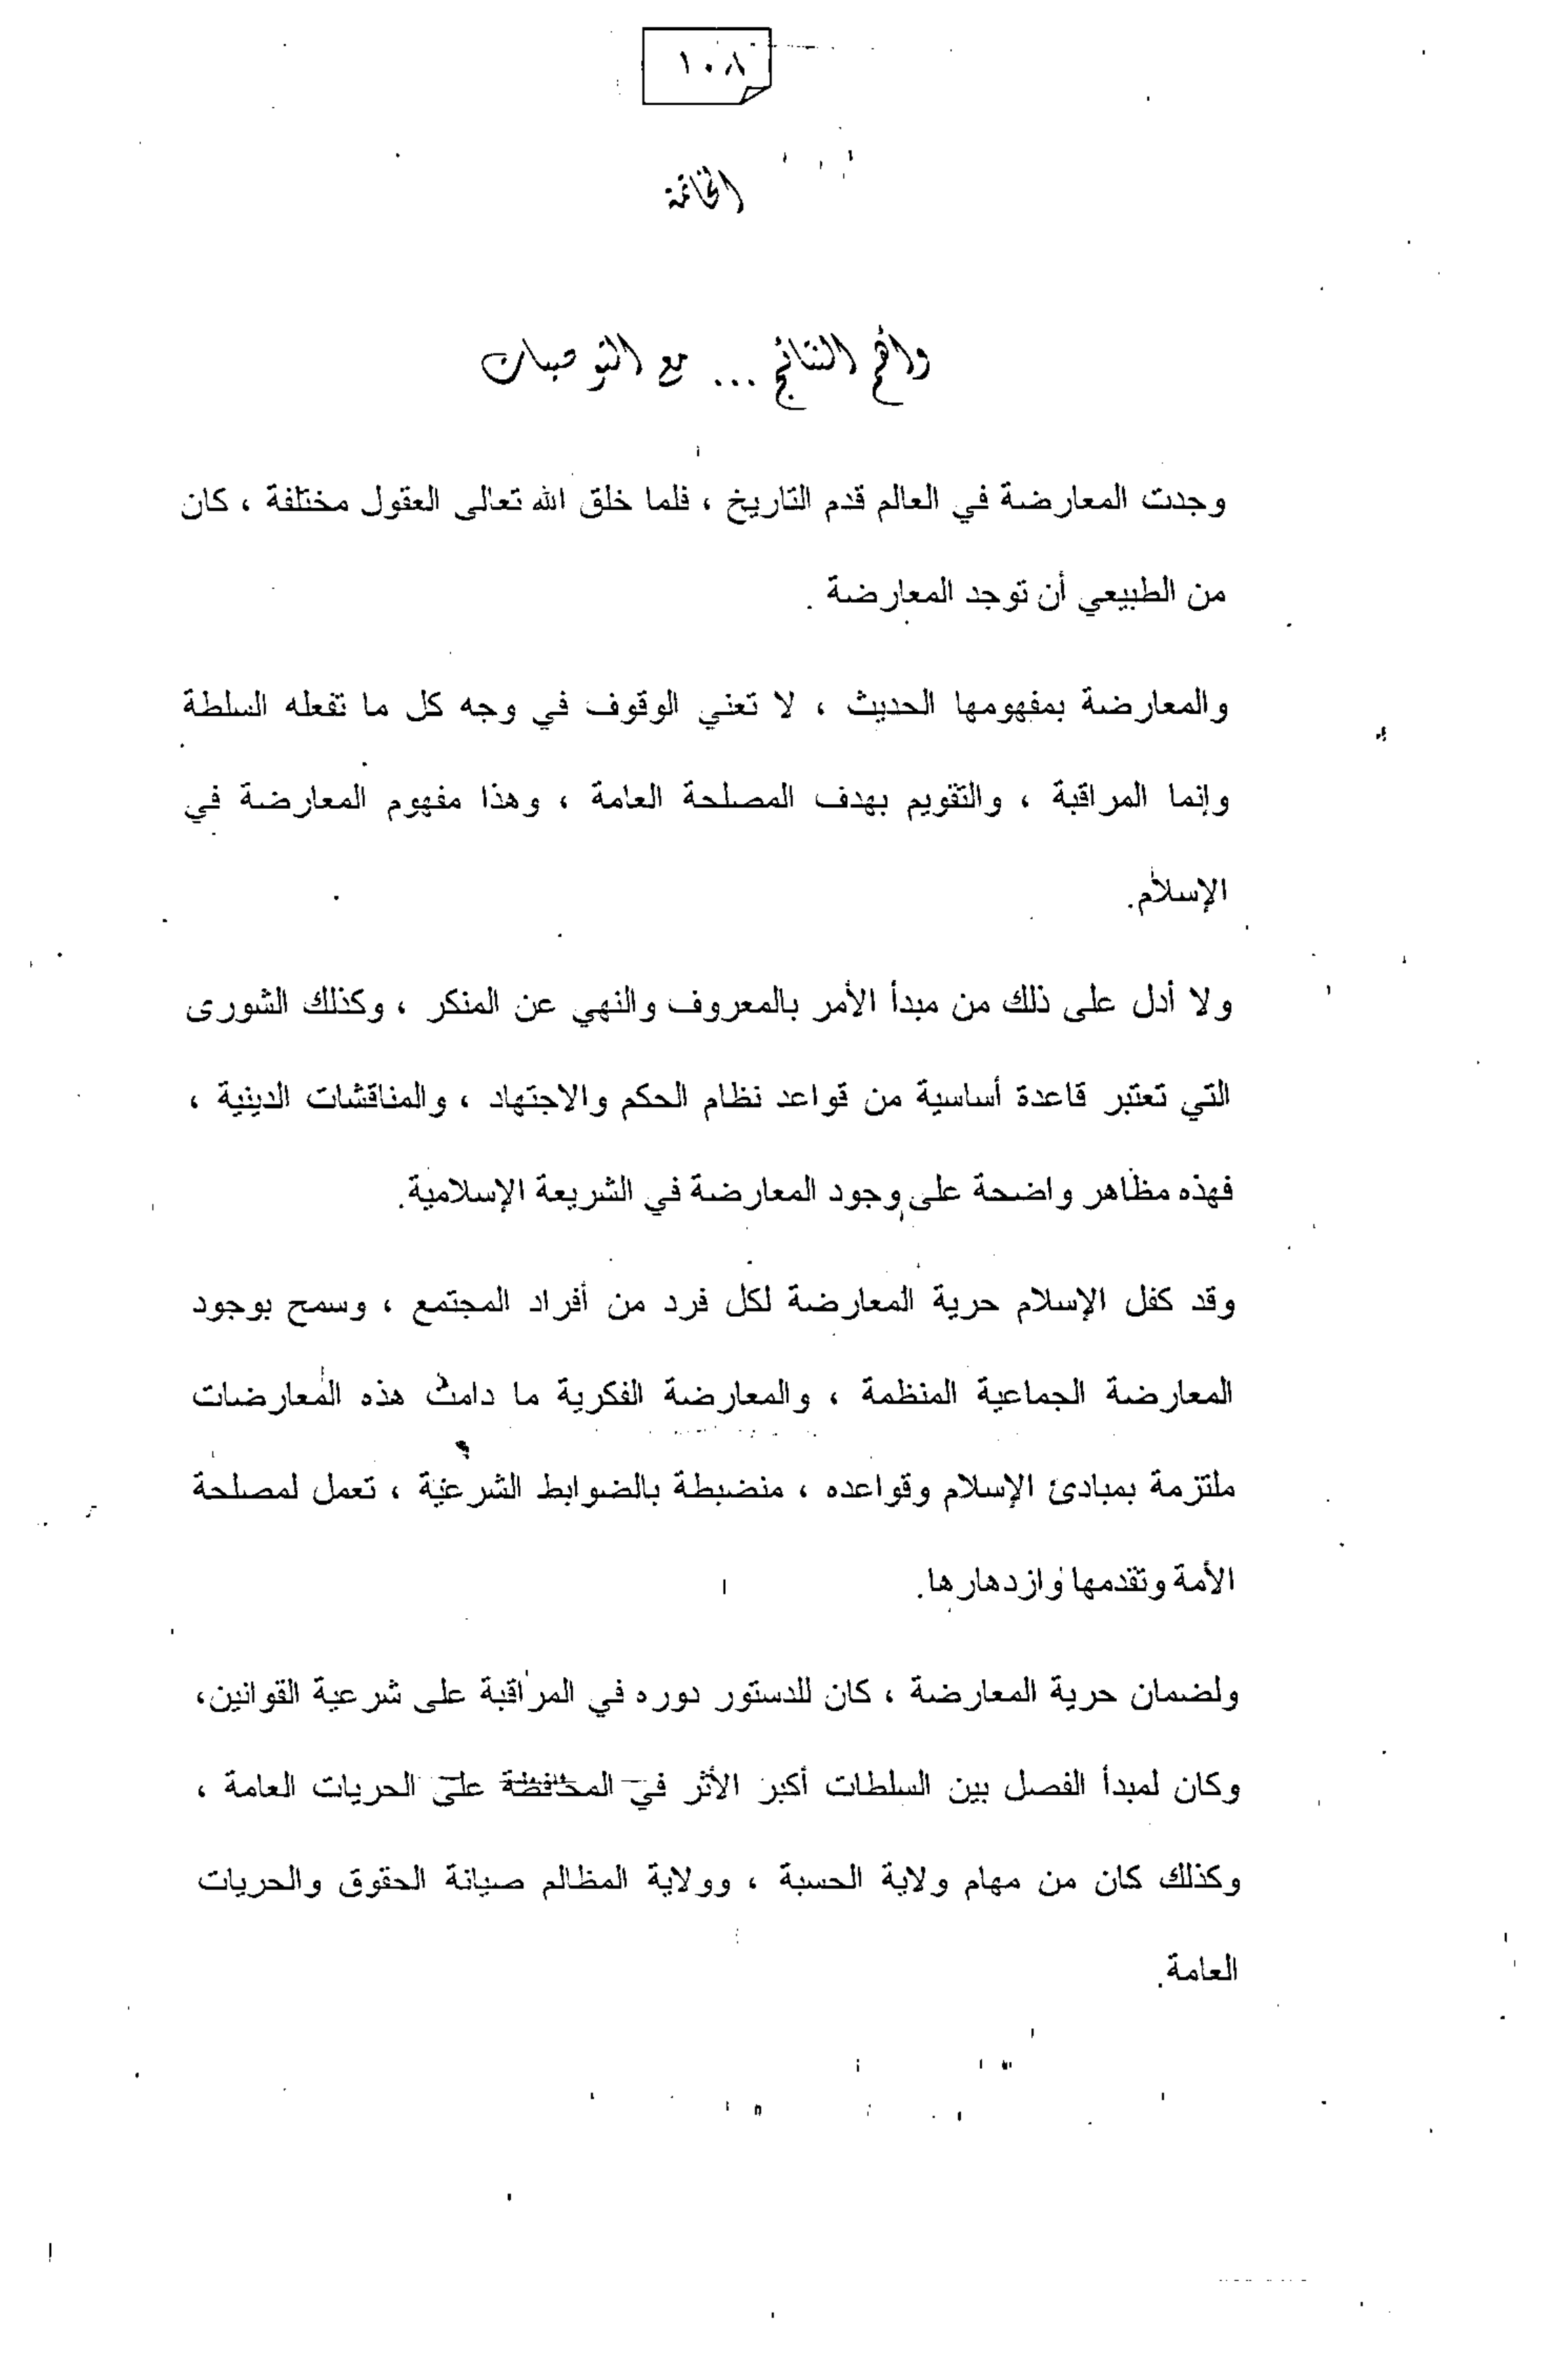 ١٠٨
الخاتمة
وأهم النتائج ... مع التوصيات
وجدت المعارضة في العالم قدم التاريخ ، فلما خلق الله تعالى العقول مختلفة ، كان
من الطبيعي أن توجد المعارضة .
والمعارضة بمفهومها الحديث ، لا تعني الوقوف في وجه كل ما تفعله السلطة
وإنما المراقبة ، والتقويم بهدف المصلحة العامة ، وهذا مفهوم المعارضة في
الإسلام.
ولا أدل على ذلك من مبدأ الأمر بالمعروف والنهي عن المنكر ، وكذلك الشورى
التي تعتبر قاعدة أساسية من قواعد نظام الحكم والاجتهاد ، والمناقشات الدينية ،
فهذه مظاهر واضحة على وجود المعارضة في الشريعة الإسلامية.
وقد كفل الإسلام حرية المعارضة لكل فرد من أفراد المجتمع ، وسمح بوجود
المعارضة الجماعية المنظمة ، والمعارضة الفكرية ما دامت هذه المعارضات
ملتزمة بمبادئ الإسلام وقواعده ، منضبطة بالضوابط الشرعية ، تعمل لمصلحة
الأمة وتقدمها وازدهارها.
ولضمان حرية المعارضة ، كان للدستور دوره في المراقبة على شرعية القوانين،
وكان لمبدأ الفصل بين السلطات أكبر الأثر في المحافظة على الحريات العامة ،
وكذلك كان من مهام ولاية الحسبة ، وولاية المظالم صيانة الحقوق والحريات
العامة.